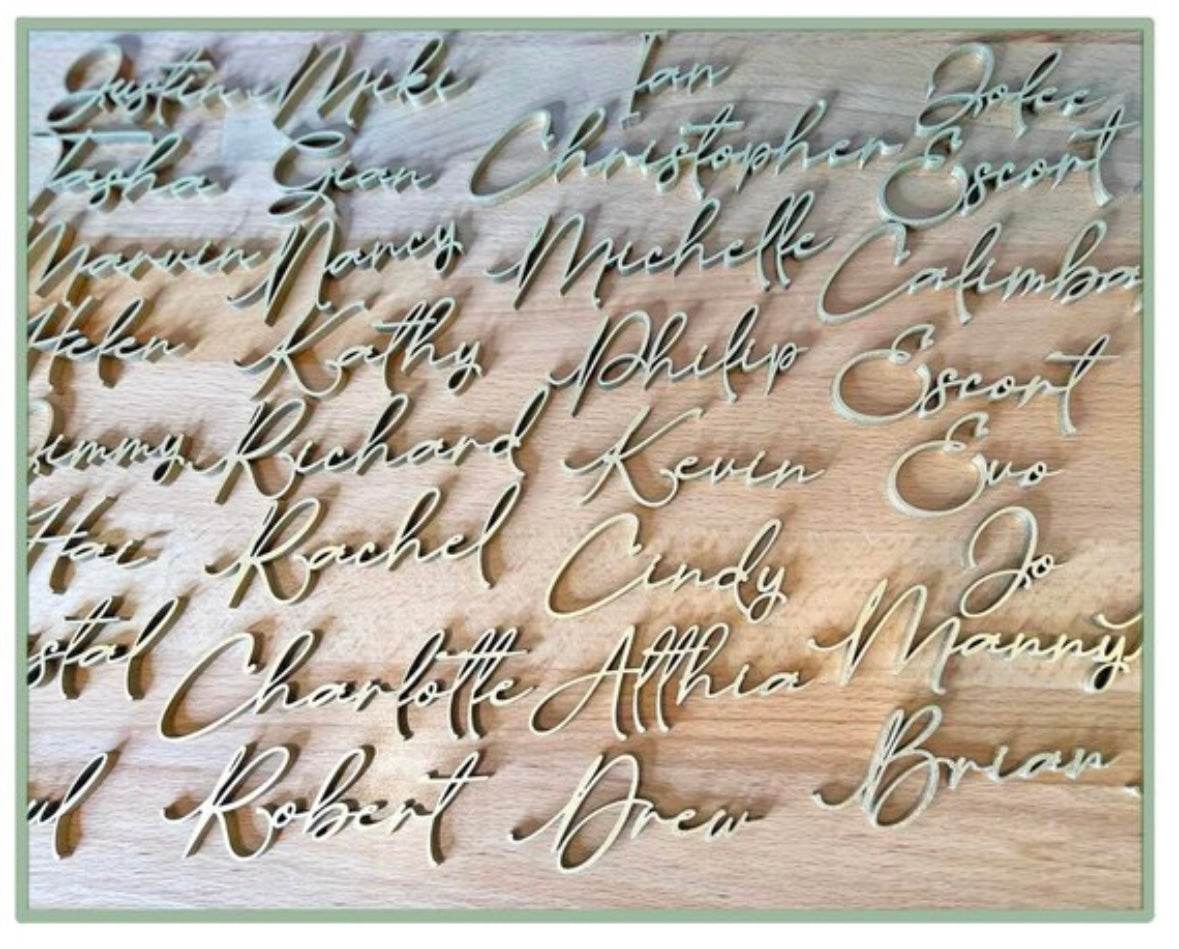 Justin Miki Ian
Tasha Gian Christopher Escort
Marvin Nancy Michelle Calimba
Helen Kathy Philip Escort
Jimmy Richard Kevin Evo
Hai Rachel Cindy Jo
stal Charlotte Atthia Manny
ul Robert Drew Brian